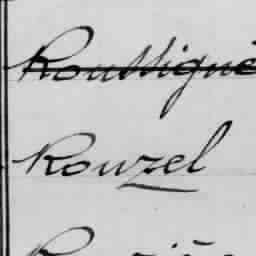 Roussigné
Rouzel